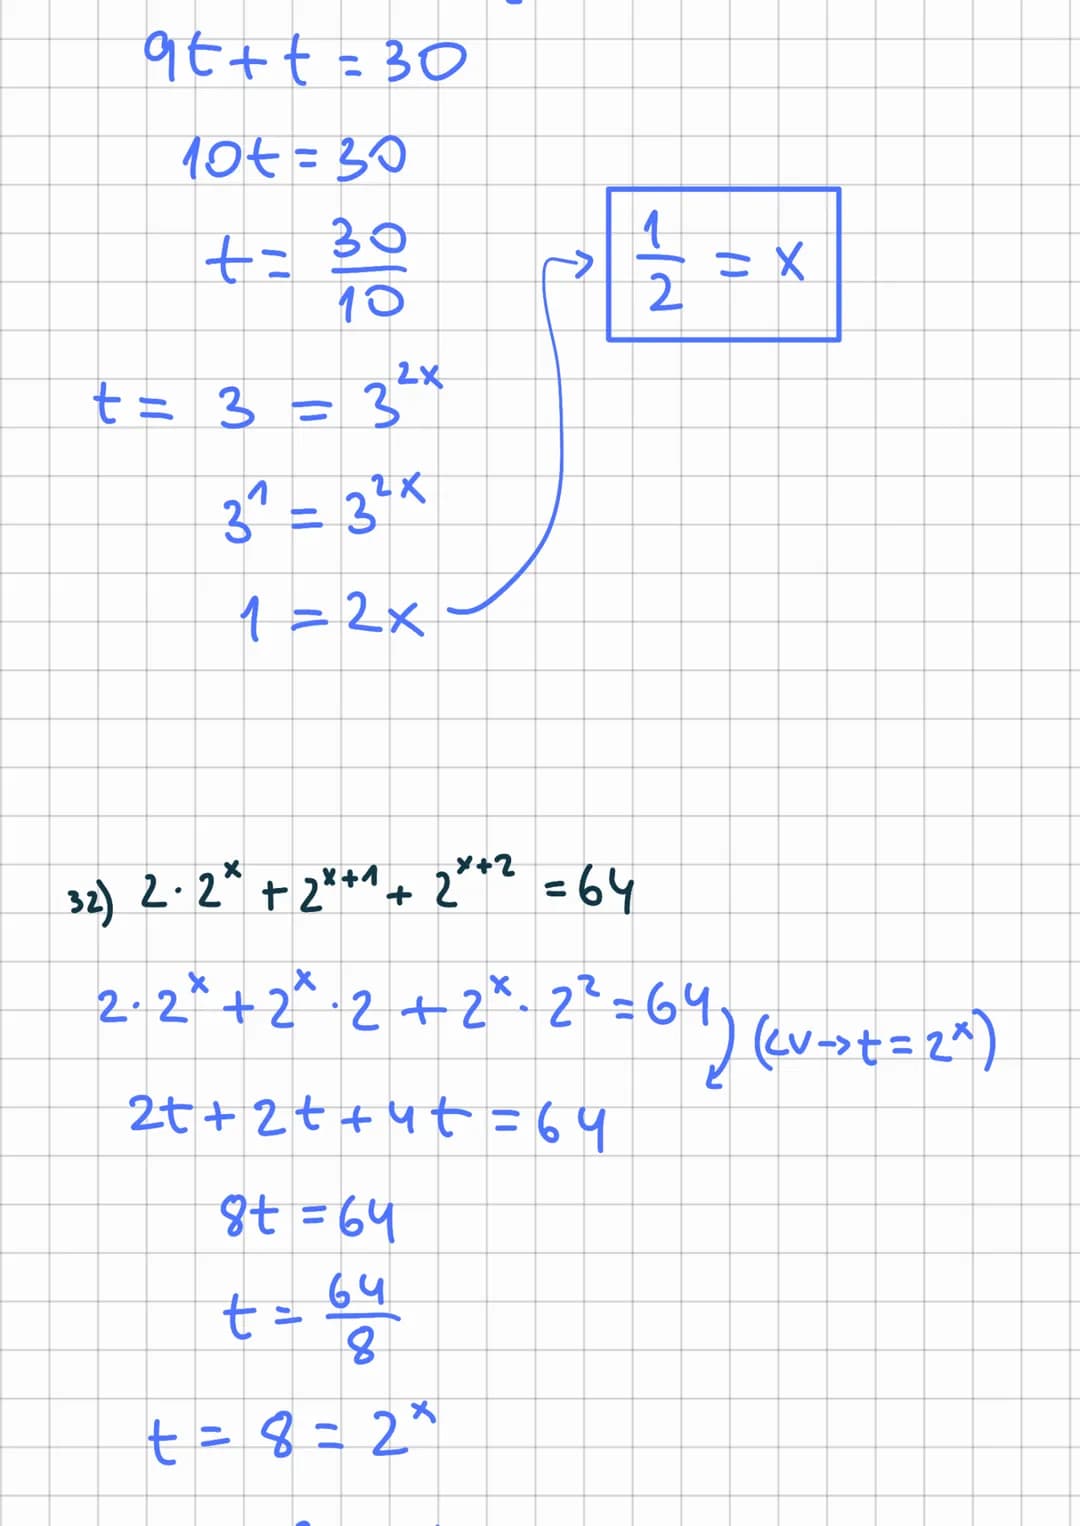 9t + t = 30
10t = 30
t = 30/10
t = 3 = 3^{2x}
3^1 = 3^{2x}
1 = 2x
1/2 = x
32) 2 · 2^x + 2^{x+1} + 2^{x+2} = 64
2 · 2^x + 2^x · 2 + 2^x · 2^2 = 64
(CV → t = 2^x)
2t + 2t + 4t = 64
8t = 64
t = 64/8
t = 8 = 2^x